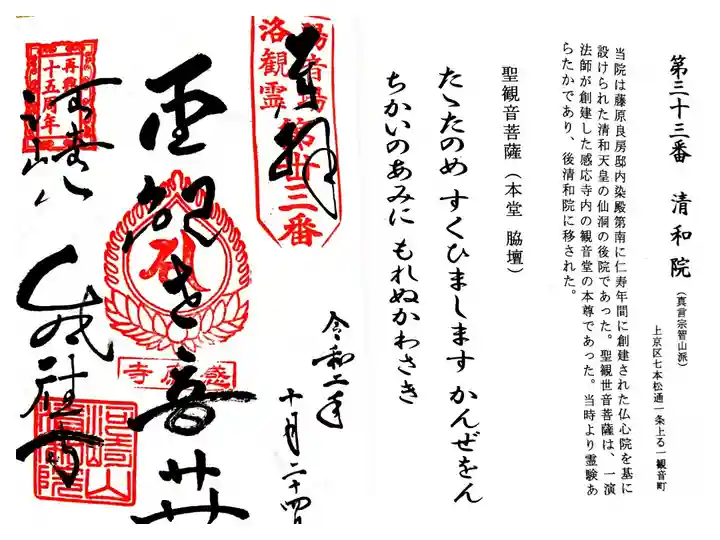 第三十三番　清和院
（真言宗智山派）
上京区七本松通一条上る一観音町
当院は藤原良房邸内染殿第南に仁寿年間に創建された仏心院を基に
設けられた清和天皇の仙洞の後院であった。聖観世音菩薩は、一演
法師が創建した感応寺内の観音堂の本尊であった。当時より霊験あ
らたかであり、後清和院に移された。
聖観音菩薩（本堂　脇壇）
たゝたのめ すくひまします かんぜをん
ちかいのあみに もれぬかわさき
令和二年
十月二十四日
奉拝
洛陽観音霊場
第卅三番
再興
十五周年
河崎
感應寺